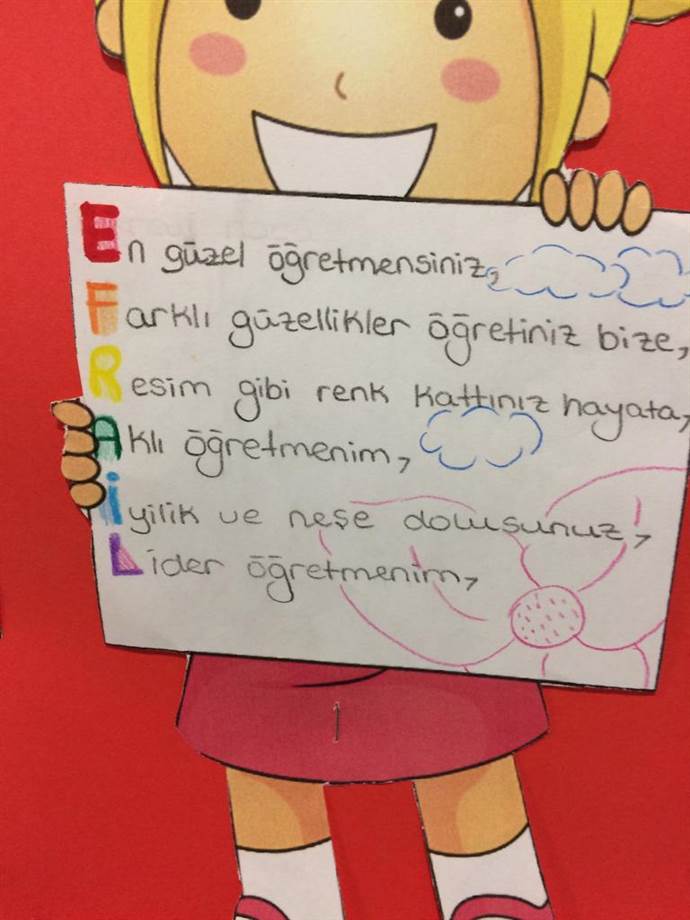 En güzel öğretmensiniz,
Farklı güzellikler öğretiniz bize,
Resim gibi renk kattınız hayata,
Aklı öğretmenim,
İyilik ve neşe dolusunuz,
Lider öğretmenim,